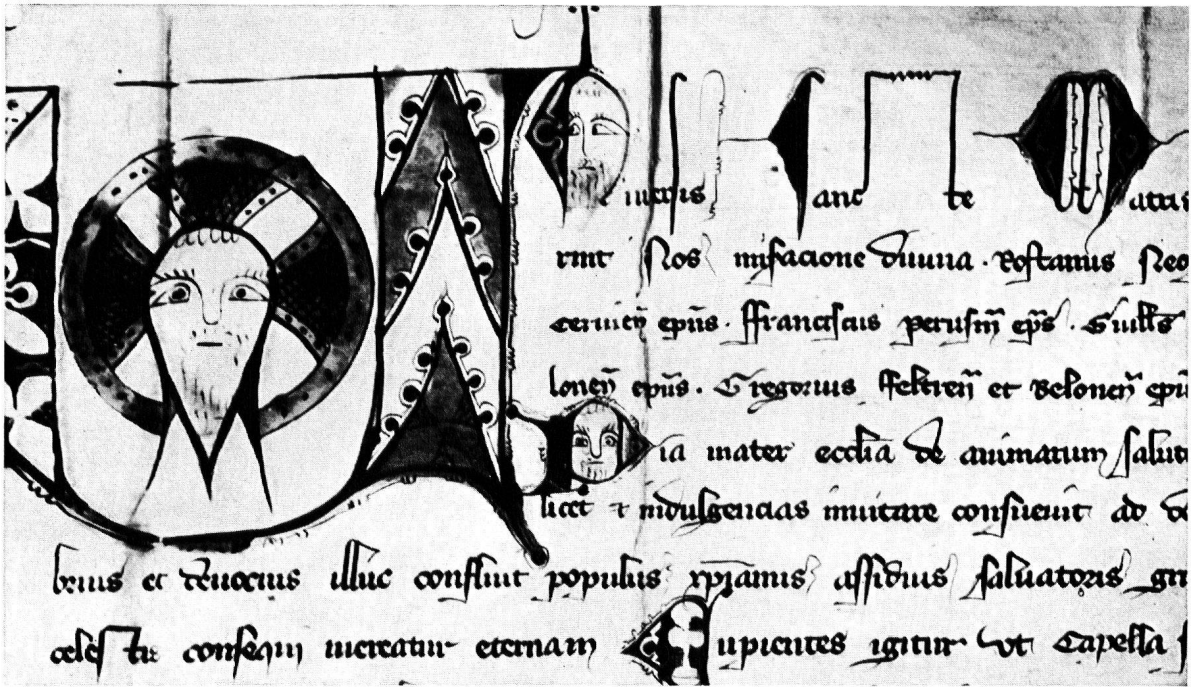 Uniuersis Sancte Matris
rint Nos miseracione diuina . Rostanus Neo
epus . Franciscus perusin eps . Guills
lonen epus . Gregorius Feltren et Belonen epu
Pia mater ecclia de animarum salut
licet et indulgencias inuitare consueuit ad de
brius et deuocius illuc confluit populus xpianus assiduis saluatoris gr
celestis consequi mereatur eternam Cupientes igitur vt Capella s